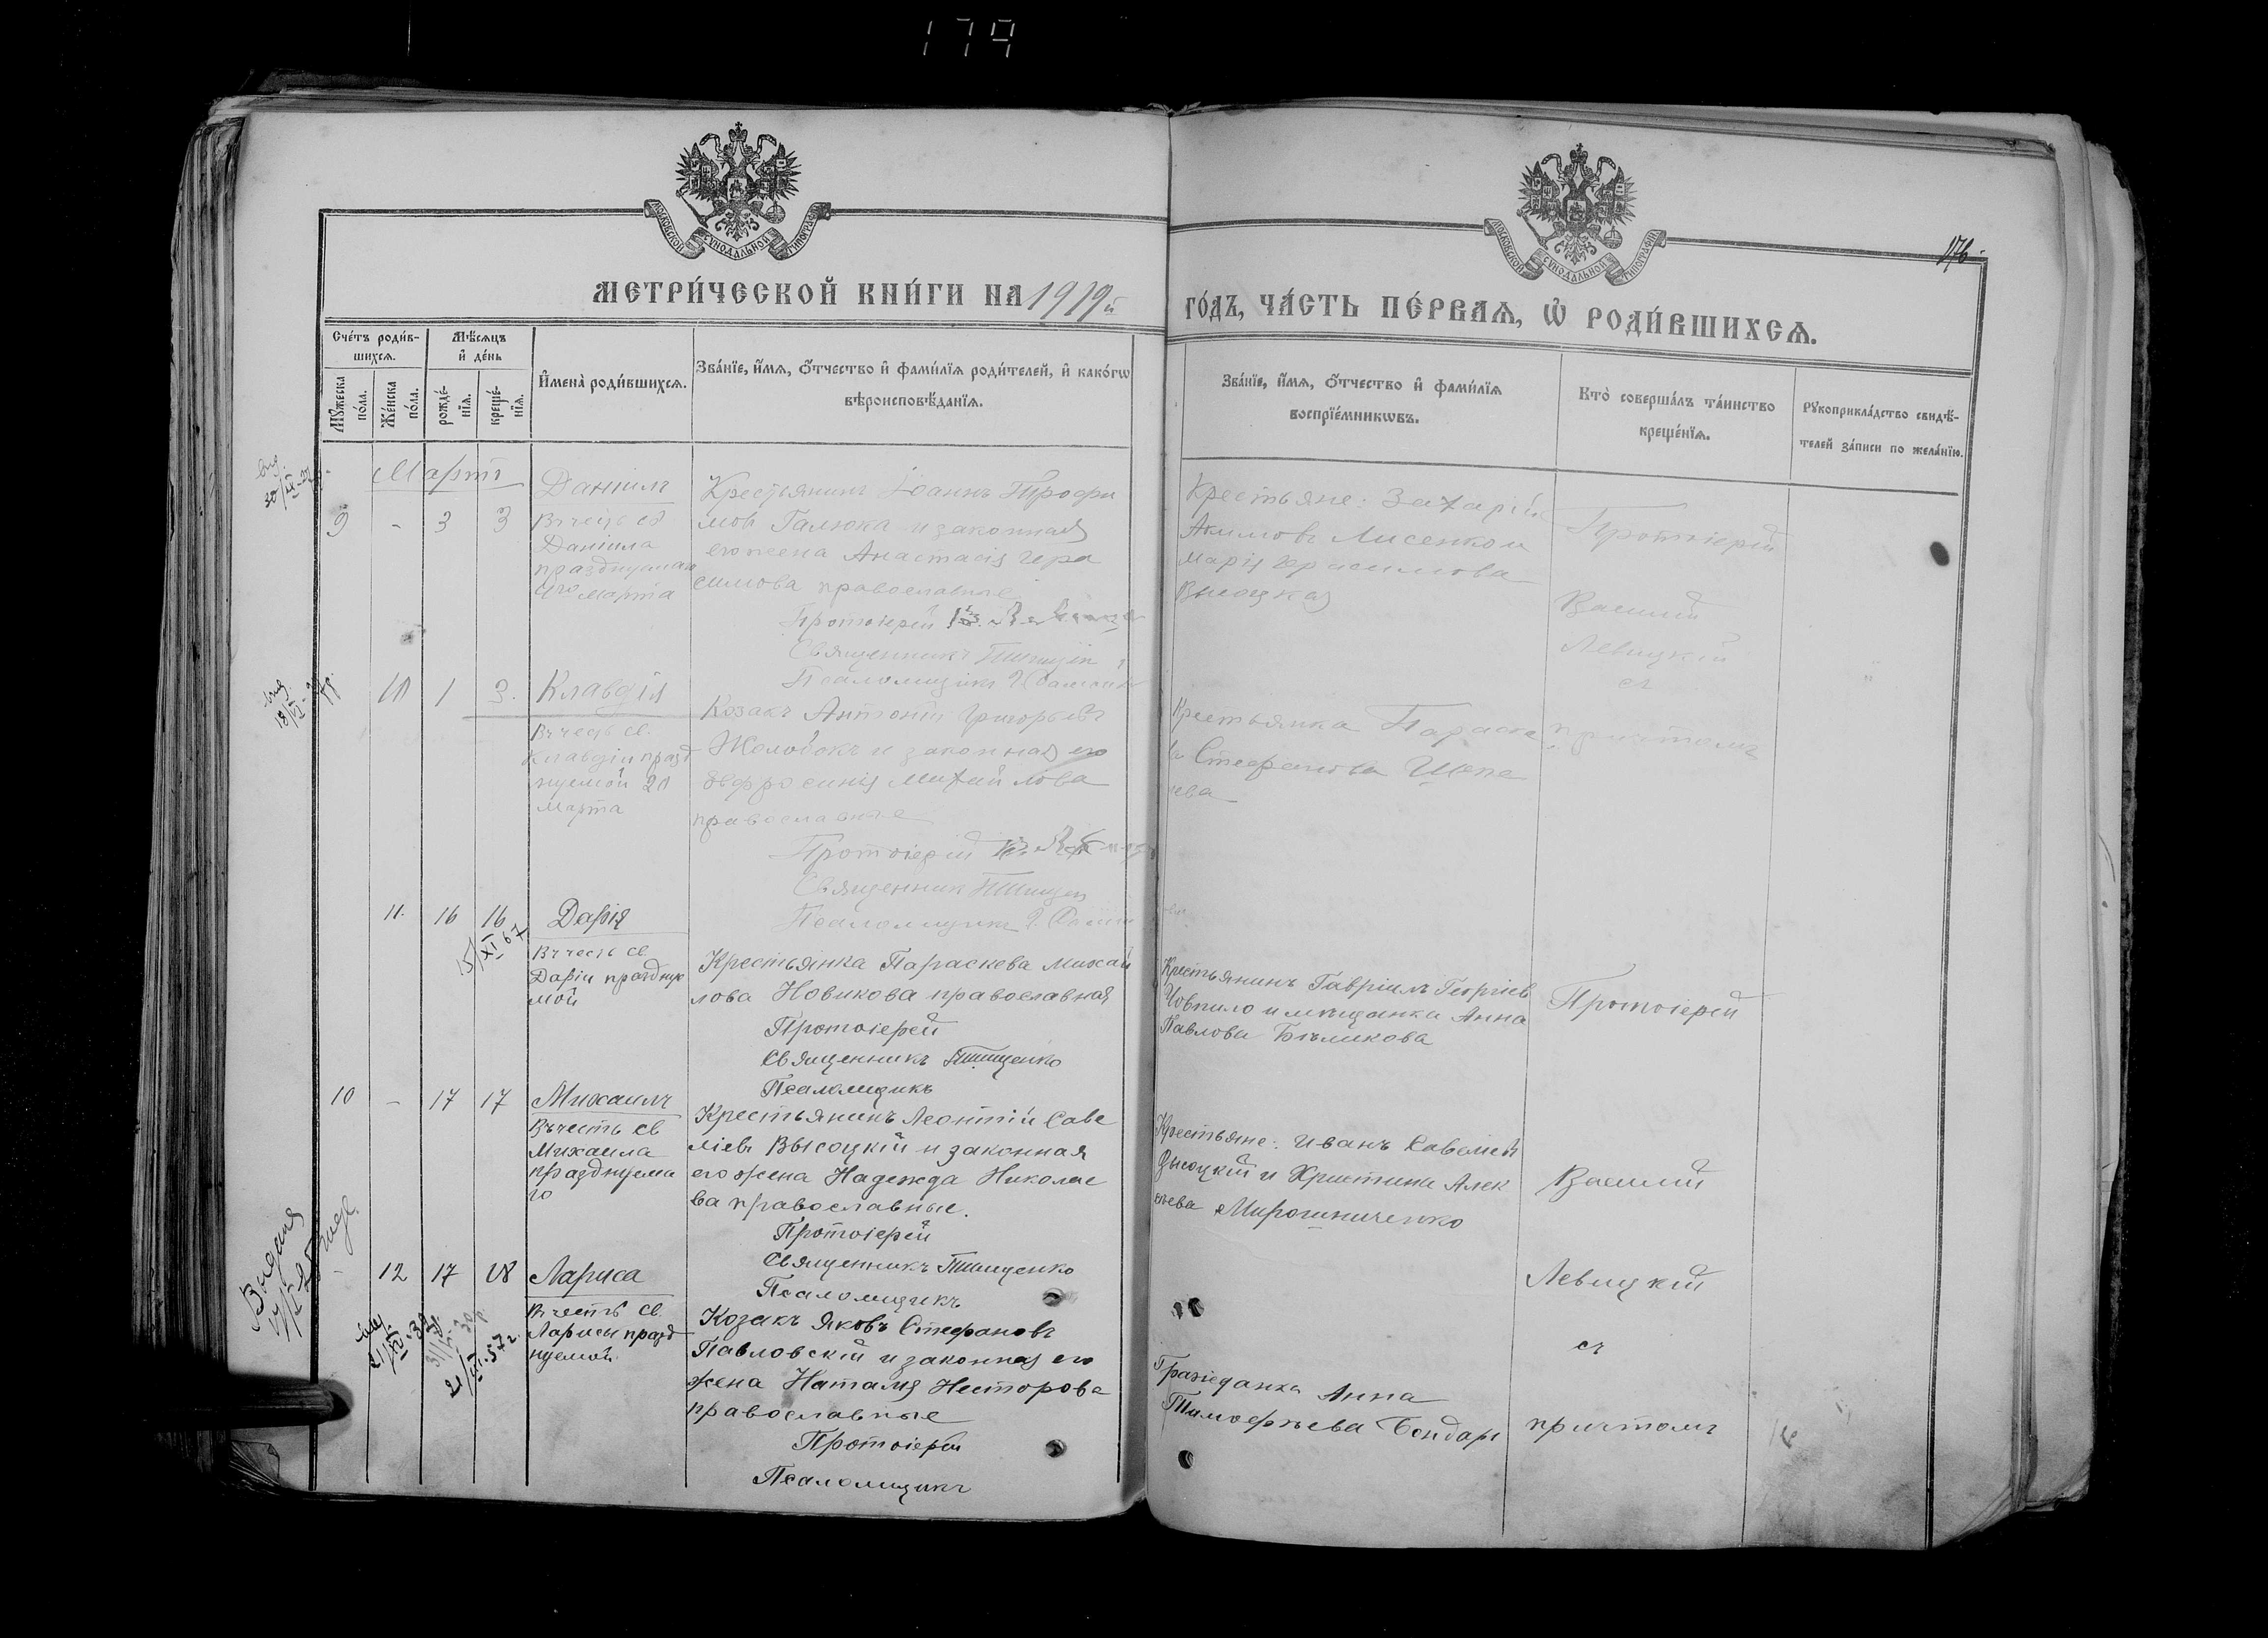 179
МОСКОВСКОЙ СѴНОДАЛЬНОЙ ТИПОГРАФІИ
МОСКОВСКОЙ СѴНОДАЛЬНОЙ ТИПОГРАФІИ
176
МЕТРИ́ЧЕСКОЙ КНИ́ГИ НА 1919й
ГО́ДЪ, ЧА́СТЬ ПЕ́РВАЯ, Ѡ РОДИ́ВШИХСЯ.
Сче́тъ роди́в-
шихся.
Мѣ́сяцъ
и де́нь
Мꙋ́жеска
по́ла.
Же́нска
по́ла.
рожде́-
нїя.
креще́-
нїя.
Имена̀ роди́вшихся.
Зва́нїе, и́мя, ѻ́тчество и фами́лїя роди́телей, и како́гѡ
вѣроисповѣ́данїя.
Зва́нїе, и́мя, ѻ́тчество и фами́лїя
воспрїе́мникѡвъ.
Кто̀ соверша́лъ та́инство
креще́нїя.
Рꙋкоприкла́дство свидѣ́-
телей за́писи по жела́нїю.
Мартъ
9 - 3 3
Даніилъ
Въ честь св
Даніила
празднуемаго
Марта
Крестьянинъ Іоаннъ Трофи
мовъ Галюка и законная
его жена Анастасія Гера
симова православные
Протоіерей
Священникъ
Псаломщикъ
Крестьяне: Захарій
Акимовъ Лисенко и
Марія Герасимова
Высоцкая
Протоіерей
Василій
Левицкій
съ
причтомъ
10 1 3.
Клавдія
Въ честь св.
Клавдіи празд
нуемой 20
Марта
Козакъ Антоній Григорьевъ
Жолобокъ и законная его
Ефросинія Михайлова
православные
Протоіерей
Священник
Псаломщикъ
Крестьянка Параске
ва Стефанова
11. 16 16
5/XI 67
Дарія
Въ честь св
Даріи празднуе
мой
Крестьянка Параскева Михай
лова Новикова православная
Протоіерей
Священникъ Тищенко
Псаломщикъ
Крестьянинъ Гавріилъ Георгіев
и мѣщанка Анна
Павлова Бѣликова
Протоіерей
10 - 17 17
Михаилъ
Въ честь св
Михаила
празднуема
го
Крестьянинъ Леонтій Саве
ліевъ Высоцкій и законная
его жена Надежда Николае
ва православные.
Протоіерей
Священникъ Тищенко
Псаломщикъ
Крестьяне: Иванъ Савеліев
Высоцкій и Христина Алек
сѣева Мирошниченко
Василій
- 12 17 18
Лариса
Въ честь св.
Ларисы празд
нуемой
Козакъ Яковъ Стефановъ
Павловскій и законная его
жена Наталія Несторова
православные
Протоіерей
Псаломщикъ
Гражданка Анна
Тимофѣева Бондарь
Левицкій
съ
причтомъ